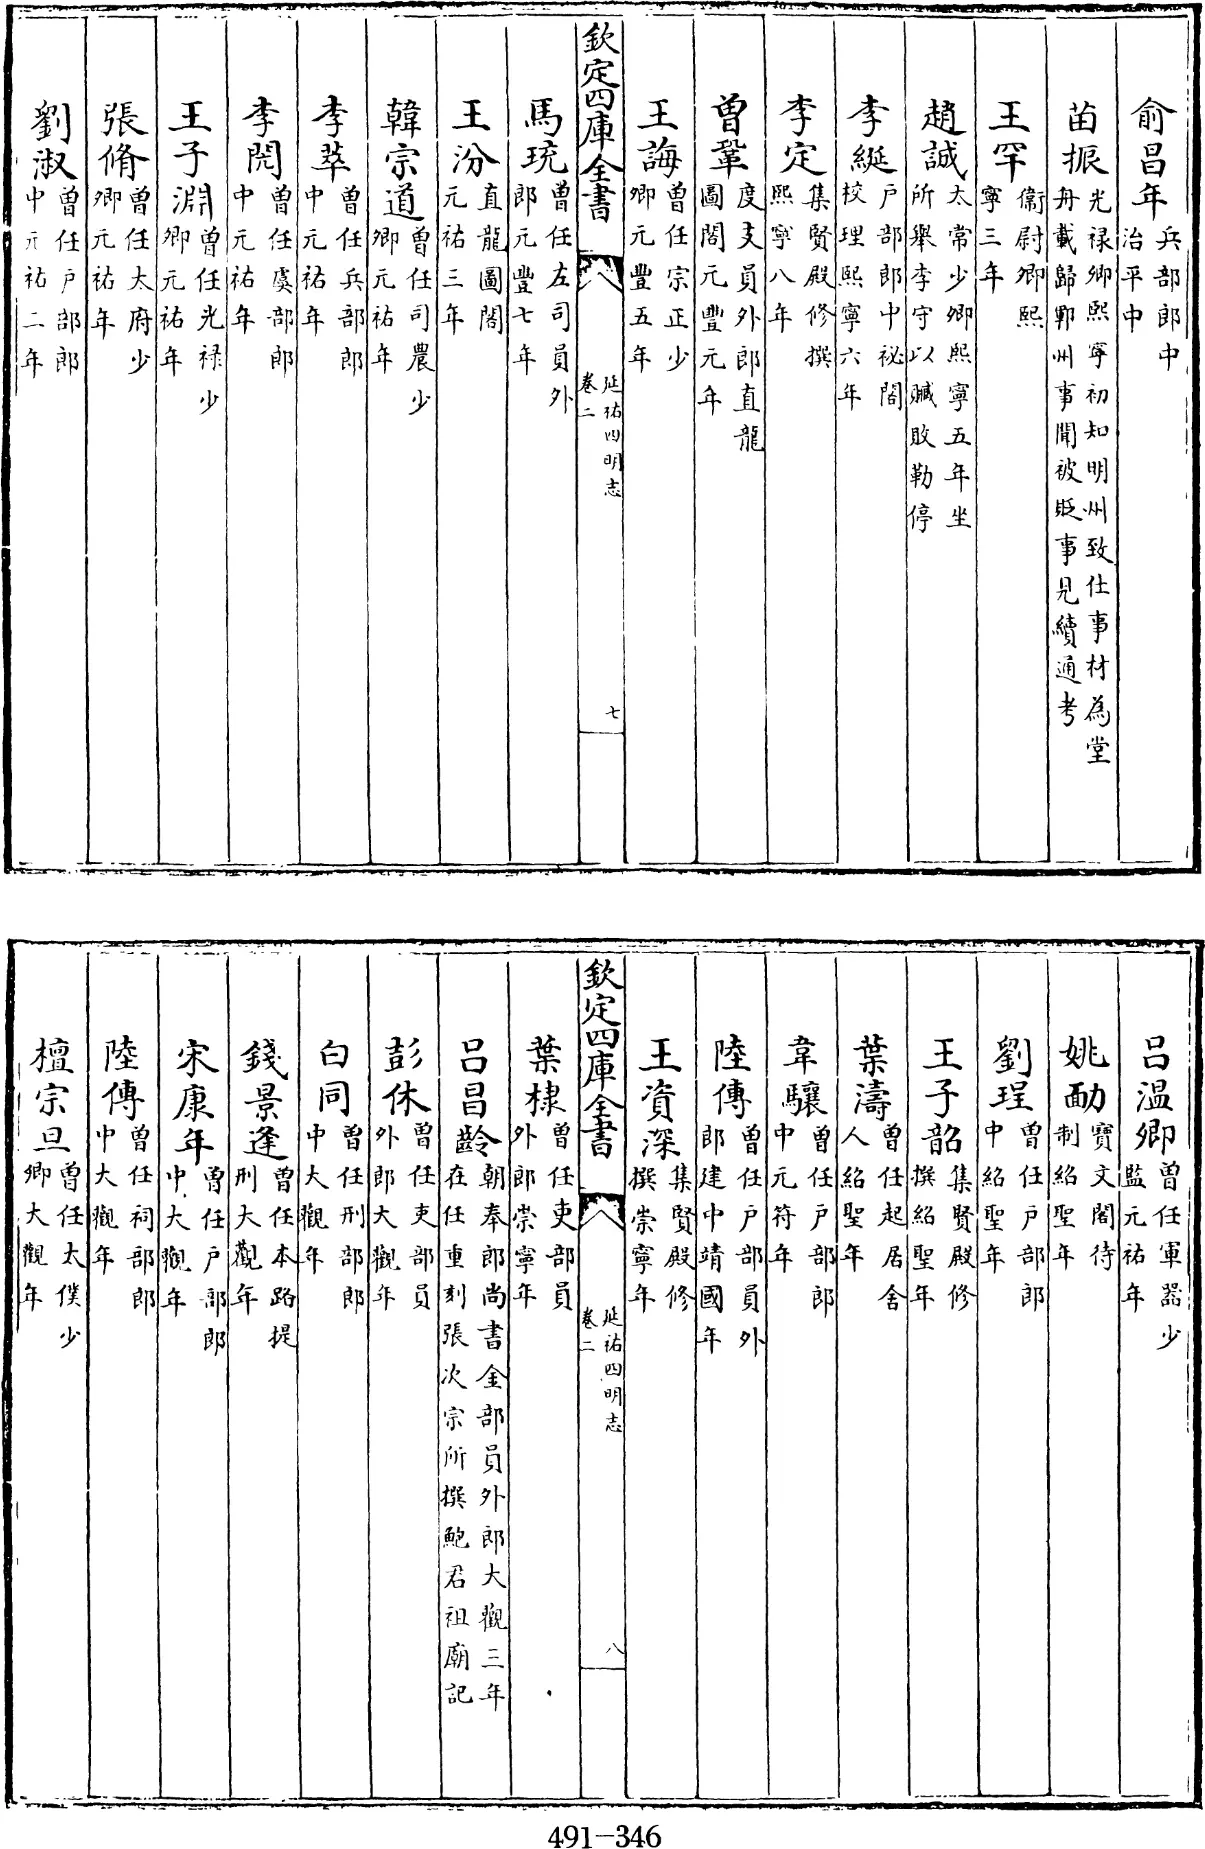 俞昌年兵部郎中治平中
苗振光禄卿熙寧初知明州致仕事材為堂舟載歸鄆州事聞被貶事見續通考
王罕衞尉卿熙寧三年
趙誠太常少卿熙寧五年坐所舉李守以贓敗勒停
李綖户部郎中祕閣校理熙寧六年
李定集賢殿修撰熙寧八年
曾鞏度支員外郎直龍圖閣元豐元年
王誨曾任宗正少卿元豐五年
欽定四庫全書 延祐四明志 卷二 七
馬珫曾任左司員外郎元豐七年
王汾直龍圖閣元祐三年
韓宗道曾任司農少卿元祐年
李萃曾任兵部郎中元祐年
李閌曾任虞部郎中元祐年
王子淵曾任光禄少卿元祐年
張脩曾任太府少卿元祐年
劉淑曾任户部郎中元祐二年
吕温卿曾任軍器少監元祐年
姚勔寶文閣待制紹聖年
劉珵曾任户部郎中紹聖年
王子韶集賢殿修撰紹聖年
葉濤曾任起居舍人紹聖年
韋驤曾任户部郎中元符年
陸傅曾任户部員外郎建中靖國年
王資深集賢殿修撰崇寧年
欽定四庫全書 延祐四明志 卷二 八
葉棣曾任吏部員外郎崇寧年
吕昌齡朝奉郎尚書金部員外郎大觀三年在任重刻張次宗所撰鮑君祖廟記
彭休曾任吏部員外郎大觀年
白同曾任刑部郎中大觀年
錢景逢曾任本路提刑大觀年
宋康年曾任户部郎中大觀年
陸傅曾任祠部郎中大觀年
檀宗旦曾任太僕少卿大觀年
491-346